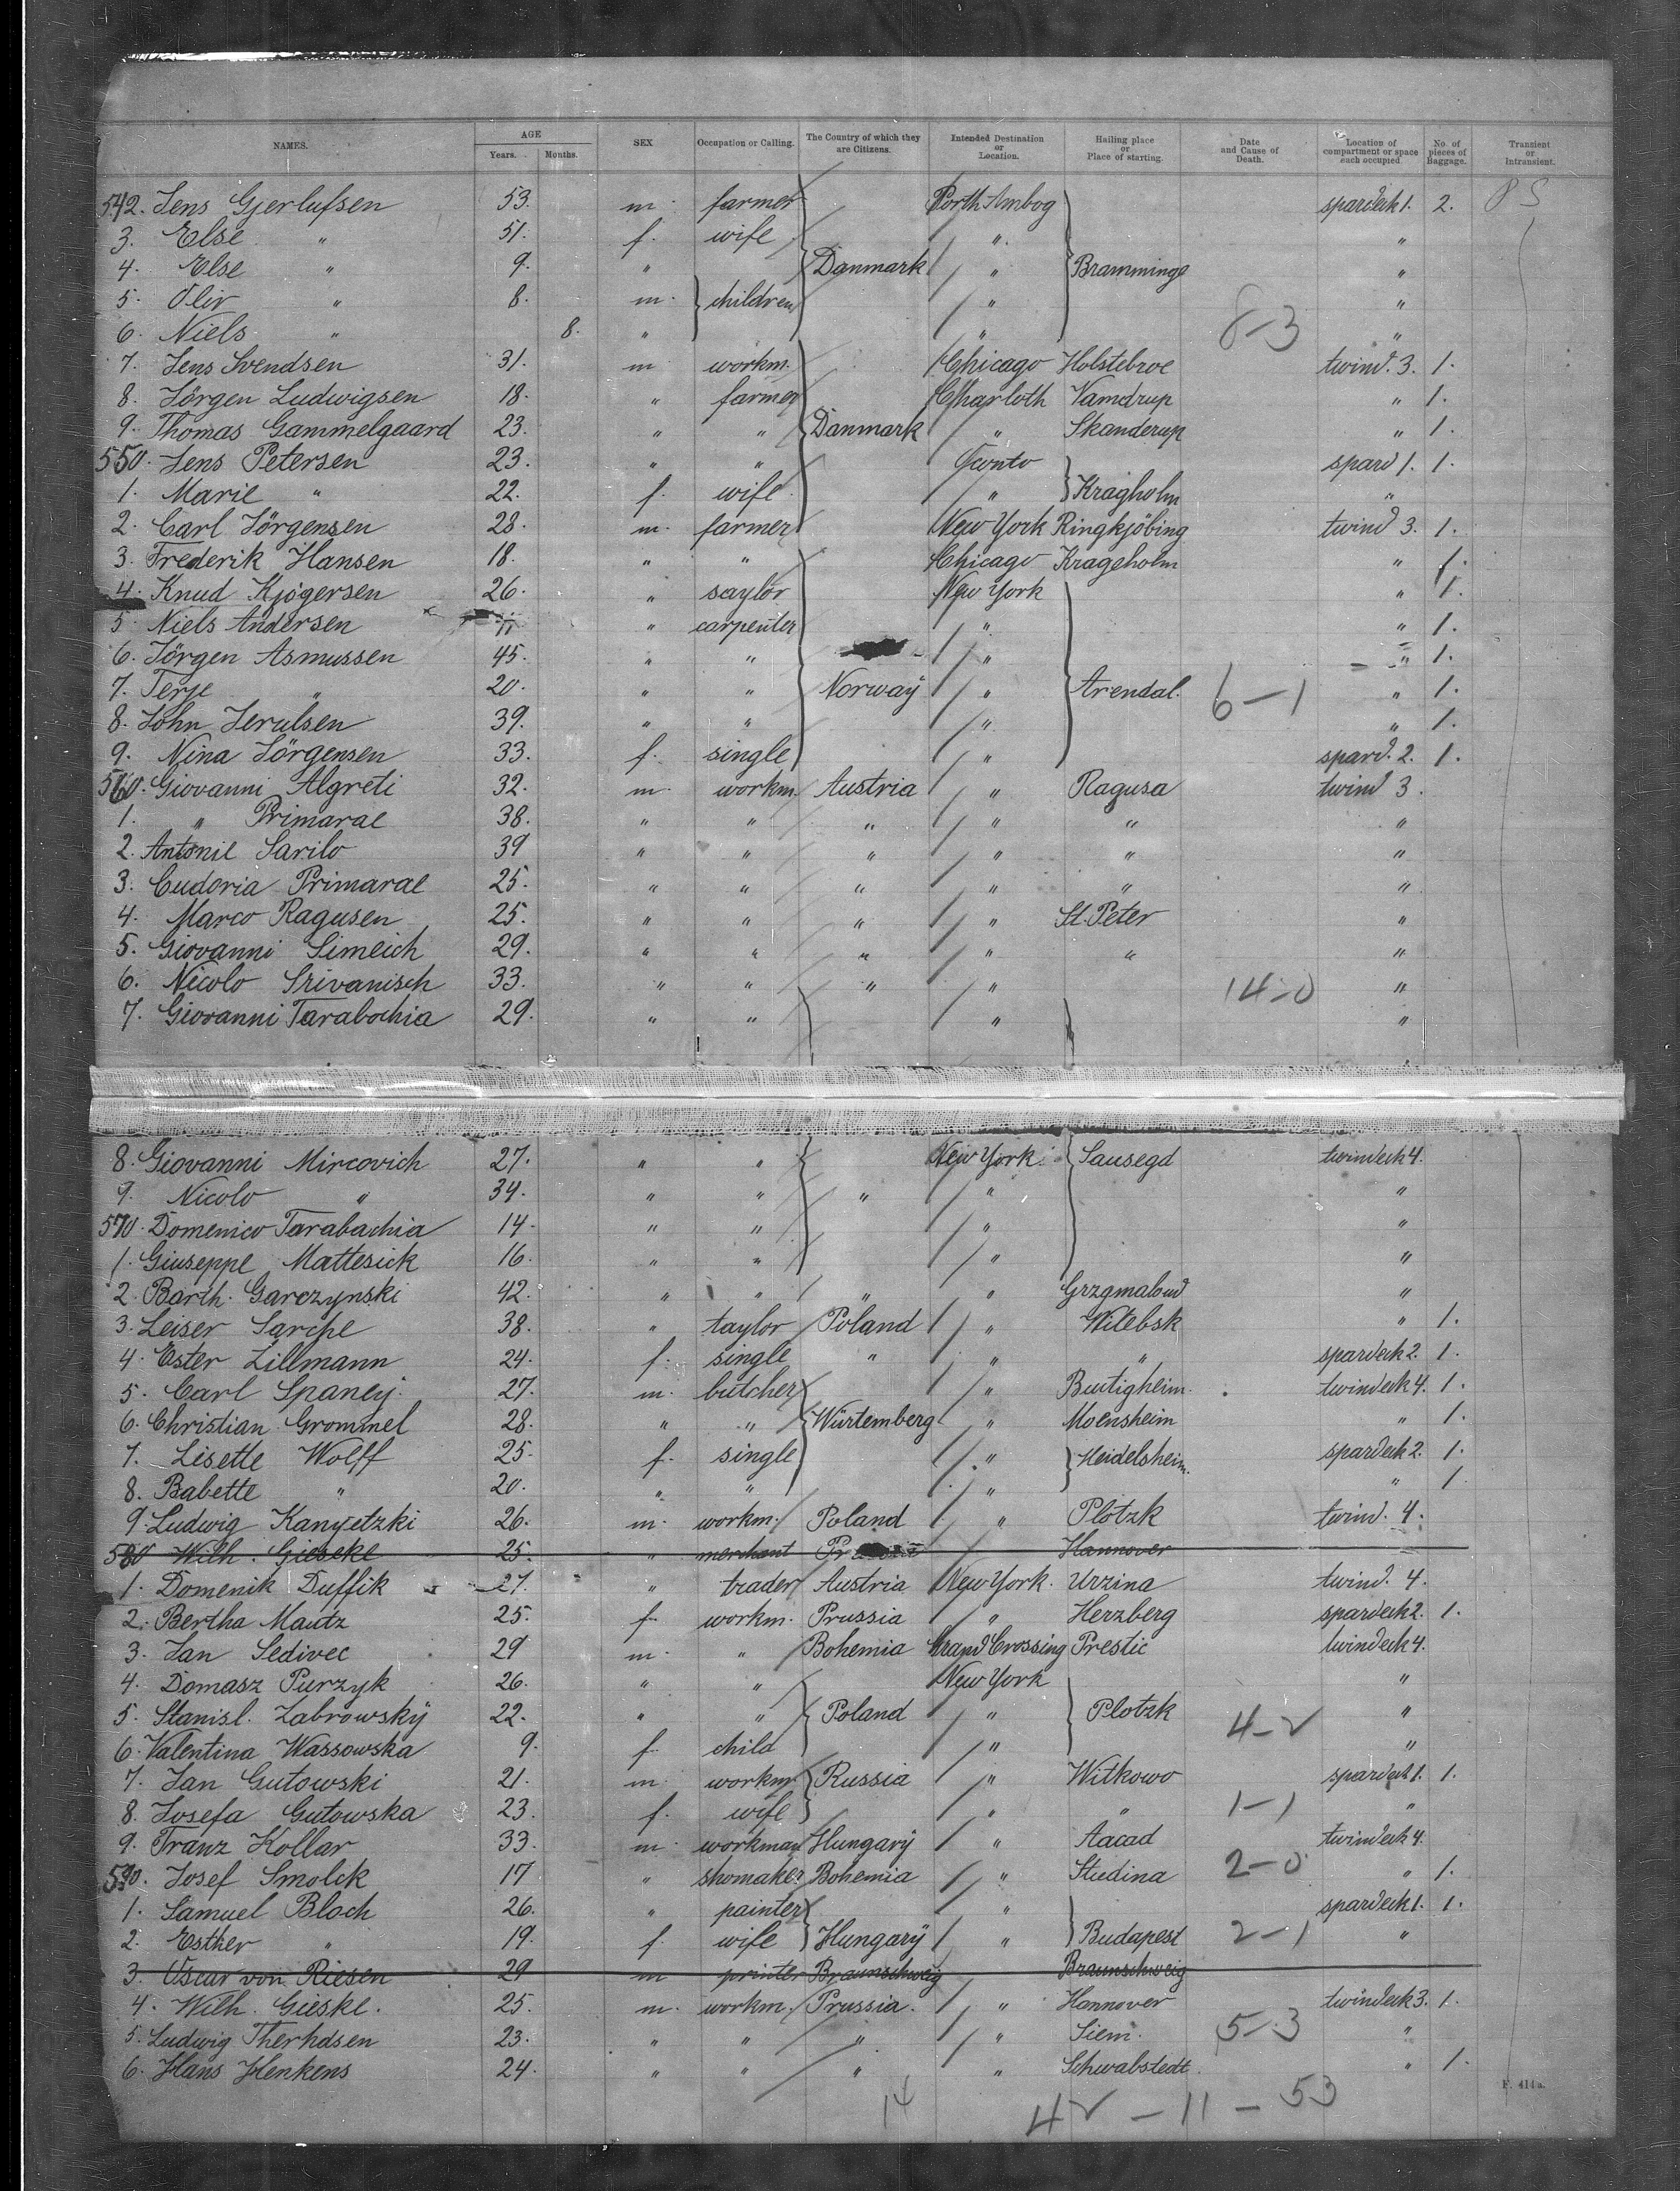 NAMES. AGE Years. Months. SEX Occupation or Calling. The Country of which they are Citizens. Intended Destination or Location. Hailing place or Place of starting. Date and Cause of Death. Location of compartment or space each occupied No. of pieces of Baggage. Transient or Intransient.
542. Jens Gjerlufsen 53. m. farmer Porth Ambog spardeck 1. 2.
3. Else " 51. f. wife " "
4. Else " 9. " Danmark " Bramminge "
5. Oliv " 8. m. children " "
6. Niels " 8. " " 8-3 "
7. Jens Svendsen 31. m workm. Chicago Holstebroe twind. 3. 1.
8. Jörgen Ludwigsen 18. " farmer Charloth Vamdrup " 1.
9. Thomas Gammelgaard 23. " " Danmark " Skanderup " 1.
550. Jens Petersen 23. " " spard 1. 1.
1. Marie " 22. f. wife " Kragholm "
2. Carl Jörgensen 28. m. farmer New York Ringkjöbing twind 3. 1.
3. Frederik Hansen 18. " " Chicago Krageholm " 1.
4. Knud Kjögersen 26. " saylor New York " 1.
5. Niels Andersen " carpenter " " 1.
6. Jörgen Asmussen 45. " " " " 1.
7. Terje " 20. " " Norway " Arendal. 6-1 " 1.
8. John Jerulsen 39. " " " " 1.
9. Nina Jörgensen 33. f. single " spard. 2. 1.
560. Giovanni Algreti 32. m. workm. Austria " Ragusa twind 3.
1. " Primarae 38. " " " " " "
2. Antonie Sarilo 39 " " " " " "
3. Cudoria Primarae 25. " " " " " "
4. Marco Ragusen 25. " " " " St. Peter "
5. Giovanni Simeich 29. " " " " " "
6. Nicolo Srivanisch 33. " " " " 14-0 "
7. Giovanni Tarabochia 29. " " " "
8. Giovanni Mircovich 27. " " New York. Sausegd twindeck 4.
9. Nicolo " 34. " " " " "
570. Domenico Tarabachia 14. " " " "
1. Giuseppe Mattesick 16. " " " "
2. Barth. Garczynski 42. " " " " Grzgmaloud "
3. Leiser Sarche 38. " taylor Poland " Witebsk " 1.
4. Ester Lillmann 24. f. single " " " spardeck 2. 1.
5. Carl Spaney. 27. m. butcher " Buitigheim. twindeck 4. 1.
6. Christian Grommel 28. " " Würtemberg " Moensheim " 1.
7. Lisette Wolff 25. f. single " Heidelsheim. spardeck 2. 1.
8. Babette " 20. " " " " 1.
9. Ludwig Kanyetzki 26. m. workm. Poland " Plotzk twind. 4.
580 Wilh. Gieseke 25. " merchant Hannover
1. Domenik Duffik 27. " trader Austria New York. Urzina twind. 4.
2. Bertha Mautz 25. f. workm. Prussia " Herzberg spardeck 2. 1.
3. Jan Sedivec 29 m. " Bohemia Grand Crossing Prestic twindeck 4.
4. Domasz Purzyk 26. " " New York "
5. Stanisl. Zabrowskÿ 22. " " Poland " Plotzk 4-2 "
6. Valentina Wassowska 9. f. child " "
7. Jan Gutowski 21. m. workm. Russia " Witkowo spardeck 1. 1.
8. Josefa Gutowska 23. f. wife " " 1-1 "
9. Franz Kollar 33. m. workman Hungarÿ " Aacad twindeck 4.
590. Josef Smolck 17 " shomaker Bohemia " Studina 2-0 " 1.
1. Samuel Bloch 26. " painter " spardeck 1. 1.
2. Esther " 19. f. wife Hungarÿ " Budapest 2-1 "
3. Oscar von Riesen 29 m printer Braunschweig Braunschweig
4. Wilh. Gieske. 25. m. workm. Prussia. " Hannover twindeck 3. 1.
5. Ludwig Therhdsen 23. " " " " Siem. 5-3 "
6. Hans Henkens 24. " " " " Schwabstedt. " 1.
F. 414a.
14 42 - 11 - 53